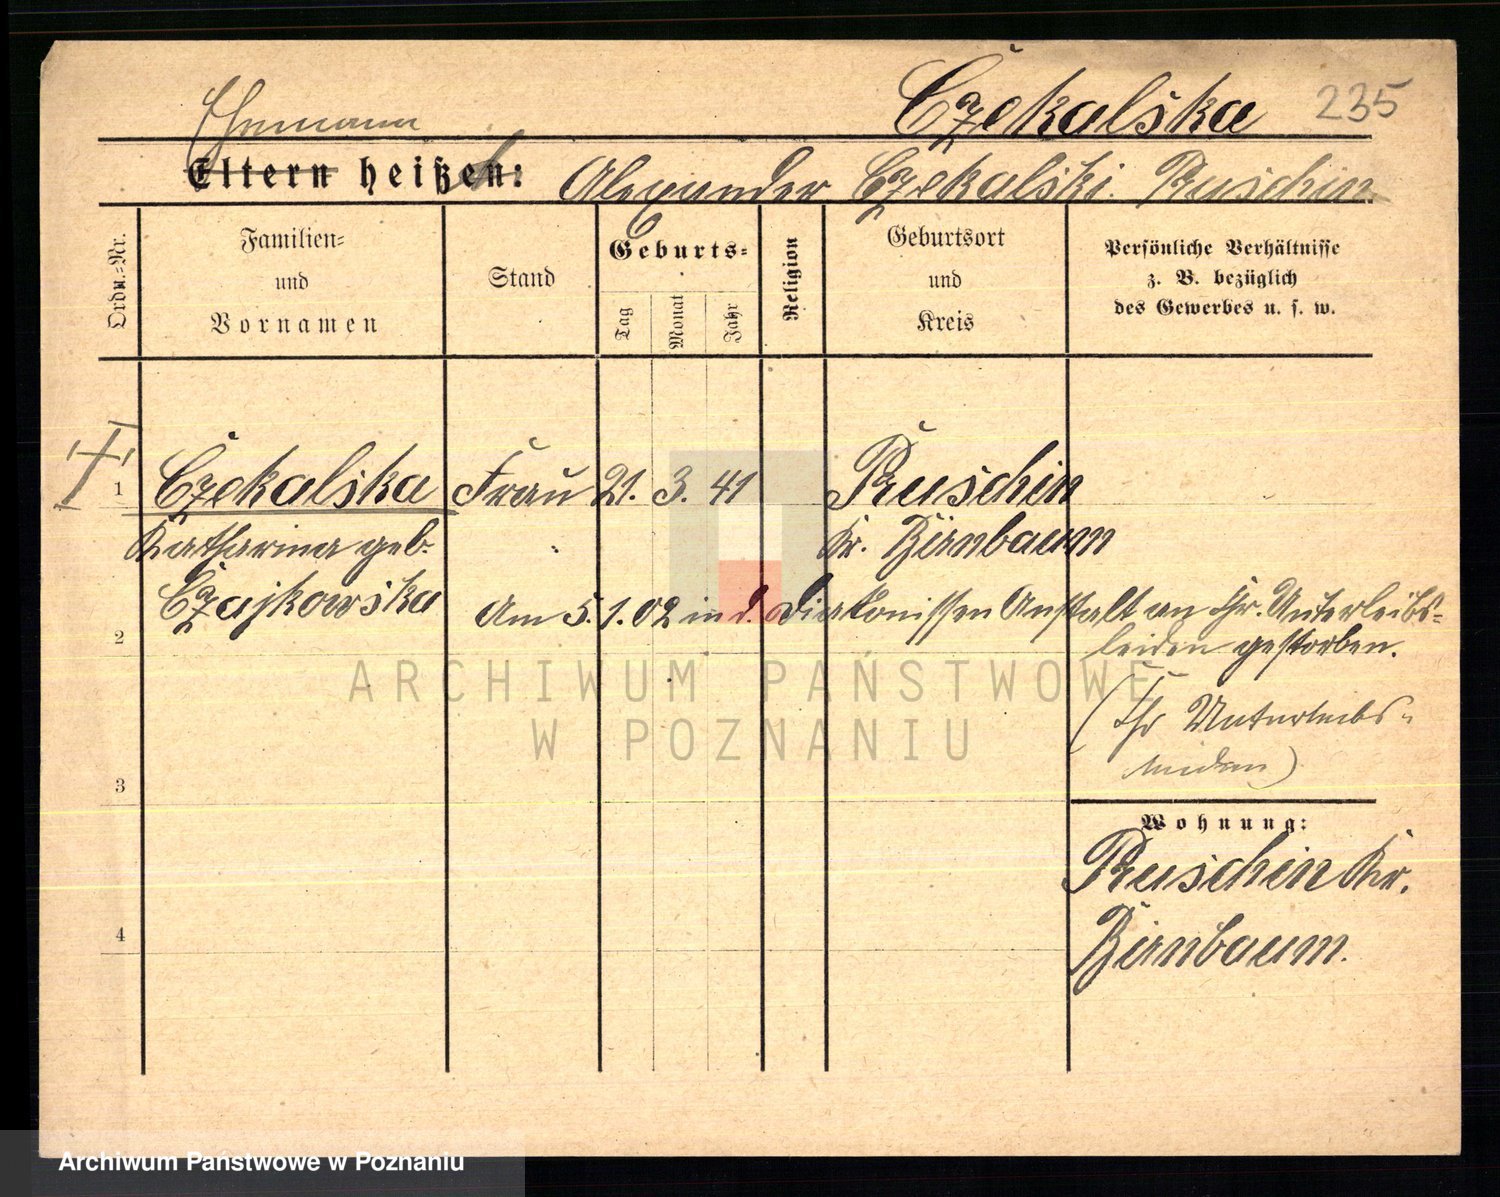 Ehemann
Czekalska 235
Eltern heißen: Alexander Czekalski. Ruschin.
Ordn.-Nr.
Familien-
und
Vornamen
Stand
Geburts-
Tag
Monat
Jahr
Religion
Geburtsort
und
Kreis
Persönliche Verhältnisse
z. B. bezüglich
des Gewerbes u. s. w.
1 Czekalska Frau 21. 3. 41 Ruschin
Katharina geb. Kr. Birnbaum
Czajkowska
2 Am 5.1.02 in d. Diakonissen Anstalt an Unterleibs-
leiden gestorben.
Unterleibs-
leiden)
3
Wohnung:
Ruschin Kr.
4 Birnbaum.
ARCHIWUM PAŃSTWOWE
W POZNANIU
Archiwum Państwowe w Poznaniu